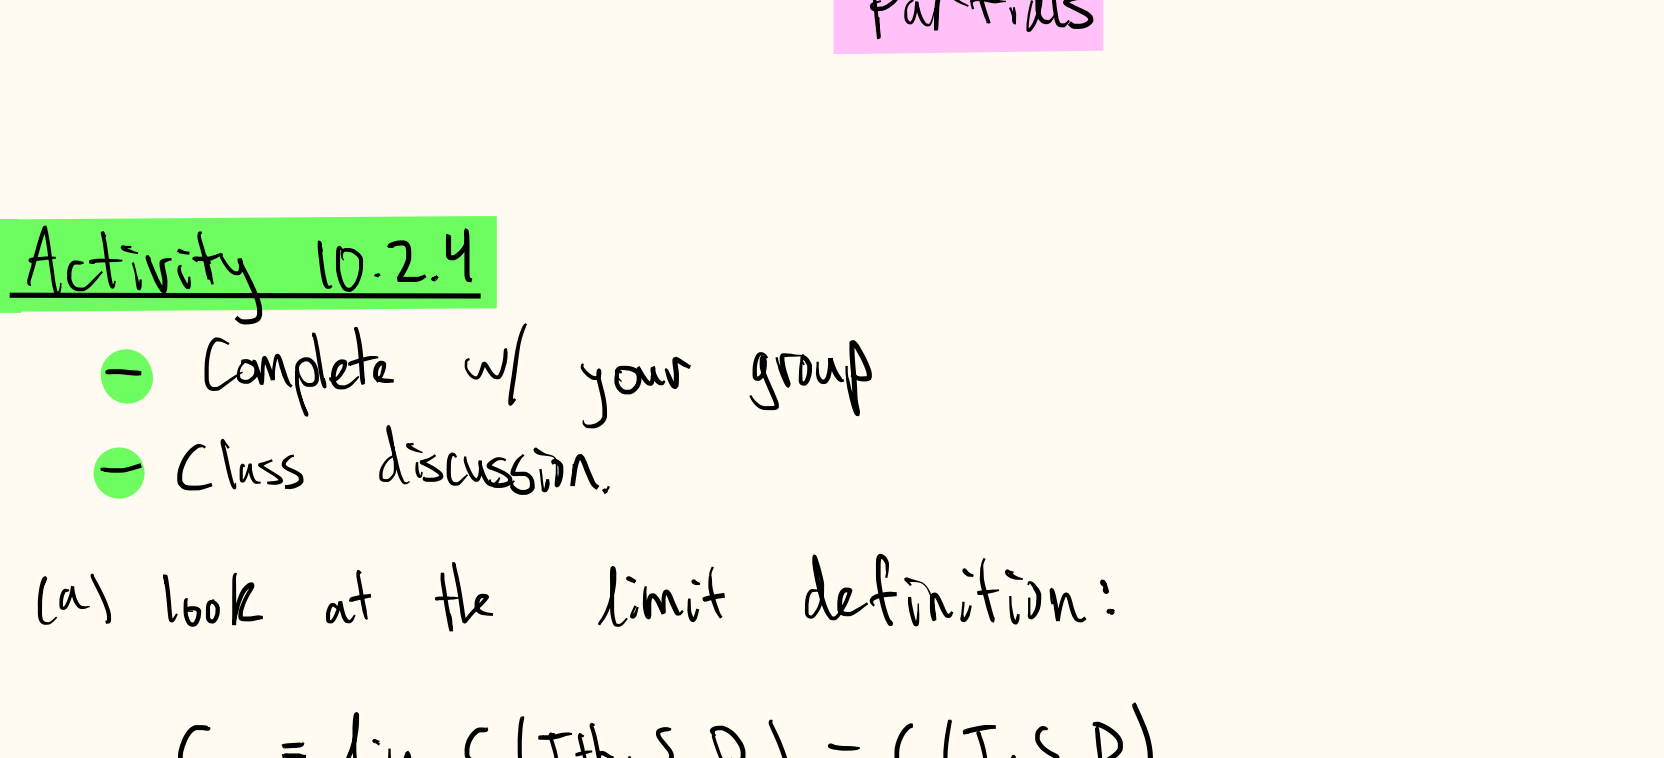 Partials
Activity 10.2.4
- Complete w/ your group
- Class discussion.
(a) look at the limit definition:
C = lim C(T+h, S, D) - C(T, S, D)